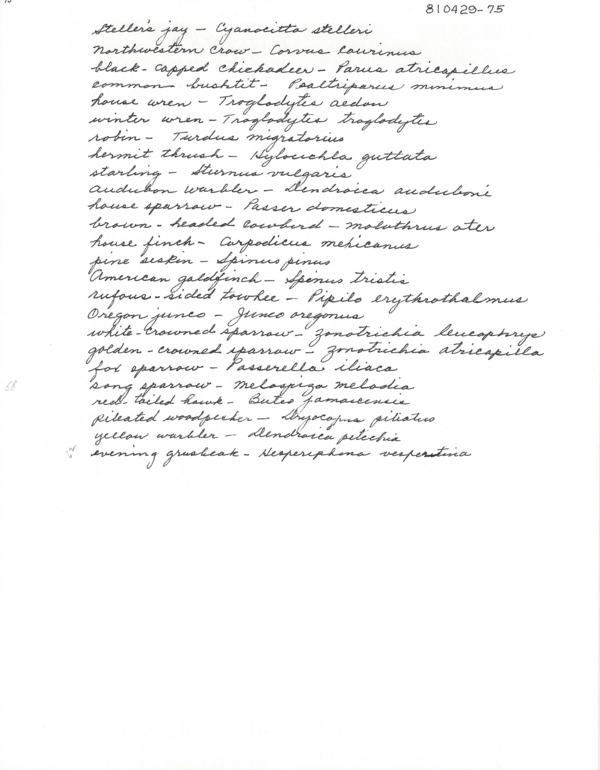 810429-75
Steller's jay - Cyanocitta stelleri
Northwestern crow - Corvus caurinus
black-capped chickadeer - Parus atricapillus
common bushtit - Psaltriparus minimus
house wren - Troglodytes aedon
winter wren - Troglodytes troglodytes
robin - Turdus migratorius
hermit thrush - Hylocichla guttata
starling - Sturnus vulgaris
Audubon warbler - Dendroica auduboni
house sparrow - Passer domesticus
brown-headed cowbird - Molothrus ater
house finch - Carpodicus mexicanus
pine siskin - Spinus pinus
American goldfinch - Spinus tristis
rufous-sided towhee - Pipilo erythrothalmus
Oregon junco - Junco oregonus
white-crowned sparrow - Zonotrichia leucophrys
golden-crowned sparrow - Zonotrichia atricapilla
fox sparrow - Passerella iliaca
song sparrow - Melospiza melodia
red-tailed hawk - Buteo jamaicensis
pileated woodpecker - Dryocopus pileatus
yellow warbler - Dendroica petechia
evening grosbeak - Hesperiphona vespertina